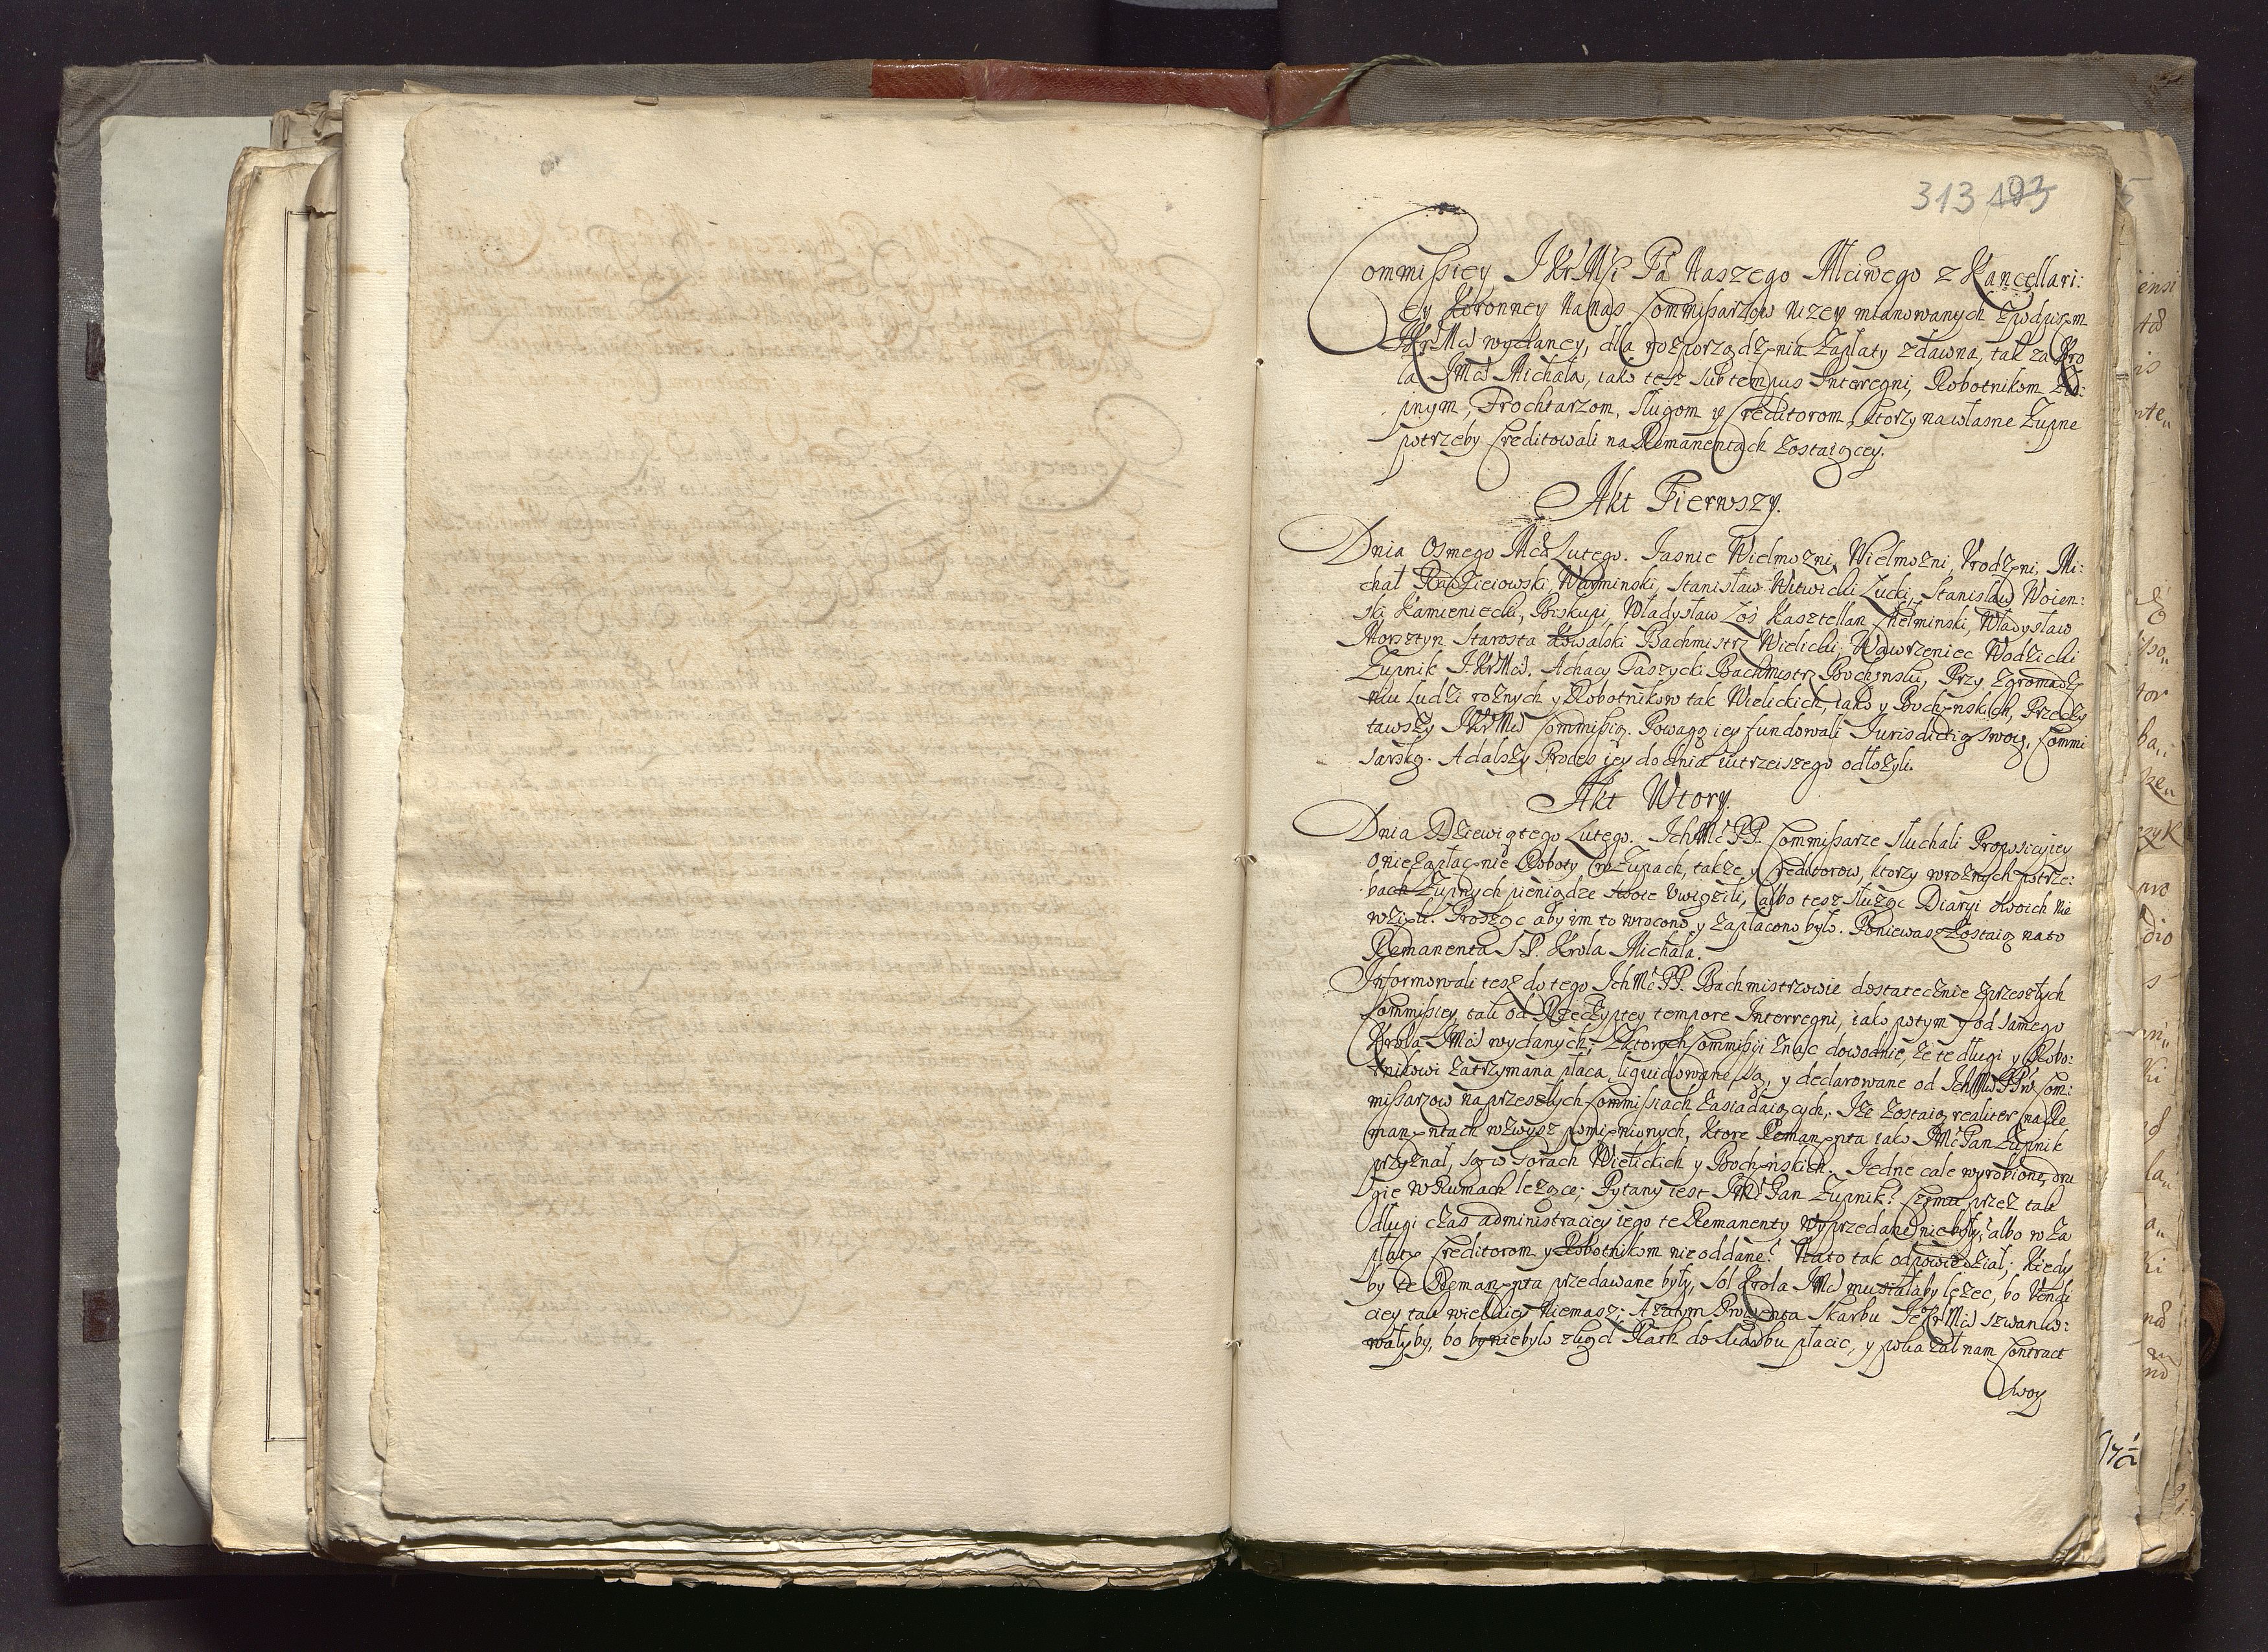 313 193
Commissiey J Kr Msci Pa Naszego Mciwego z Kancellari:
ey Koronney na nas Commissarzow nizey mianowanych z podpisem
JKrMci wydaney, dla rozporządzenia zapłaty zdawna, tak za Kro
la JMci Michała, iako tesz sub tempus Interregni, Robotnikom Zu:
pnym, Prochtarzom, sługom y Creditorom, ktorzy na własne Zupne
potrzeby Creditowali na Remanentach zostaiącey.
Akt Pierwszy.
Dnia Osmego Mca Lutego. Jasnie Wielmozni, Wielmozni, Vrodzeni, Mi:
chał Radzieiowski, Warminski, Stanisław Witwicki Łucki, Stanisław Woien:
ski, Kamieniecki, Biskupi, Władysław Łoś Kasztellan Chełminski, Władysław
Morsztyn Starosta Kowalski Bachmistrz Wielicki, Wawrzeniec Wodzicki
Zupnik J.KrMci. Achacy Taszycki Bachmistrz Bochenski, Przy zgromadze
niu ludzi roznych y Robotnikow tak Wielickich, iako y Bochenskich, Przeczy
tawszy JKrMci Commissią. Powagą iey fundowali Jurisdictią swoię, Commi
sarską. A dalszy Proces iey do dnia iutrzeiszego odłożyli.
Akt Wtory.
Dnia Dziewiątego Lutego. IchMć PP. Commissarze słuchali Propositiey
o niezapłacenie Roboty w Zupach, także, y Creditorow, ktorzy w roznych potrze:
bach Zupnych pieniądze swoie vwięzili, albo tesz służąc Diaryi swoich nie
wzięli. Prosząc aby im to wrocono y zapłacono było. Poniewasz zostaią na to
Remanenta S.P. Krola Michała.
Informowali tesz do tego IchMć PP. Bachmistrzowie dostatecznie z przeszłych
Commissiey, tak od Rzeczyptey tempore Interregni, iako potym y od samego
Krola JMci wydanych; z ktorych Commissii znać dowodnie, że te długi y Robo:
tnikowi zatrzymana płaca, liquidowane są, y declarowane od IchMciPPw Com:
missarzow na przeszłych Commissiach zasiadaiących. Iże zostaią realiter na Re
manentach wzwysz pomienionych, ktore Remanenta iako JMć Pan Zupnik
przyznał, są w Gorach Wielickich y Bocheńskich. Jedne cale wyrobione, dru
gie w Rumach leżące; Pytany iest JMć Pan Zupnik? Czemu przez tak
długi czas administraciey iego te Remanenty wyprzedane nie były, albo w za
płatę Creditorom y Robotnikom nie oddane? Na to tak odpowiedział; Kiedy
by te Remanenta przedawane były, sol Krola JMci musiałaby leżec, bo Vendi
ciey tak wielkiey niemasz; A zatym Prowenta Skarbu JeKrMci szwanko:
wałyby, bo by nie było zkąd Rath do Skarbu płacic, y pokazał nam Contract
swoy